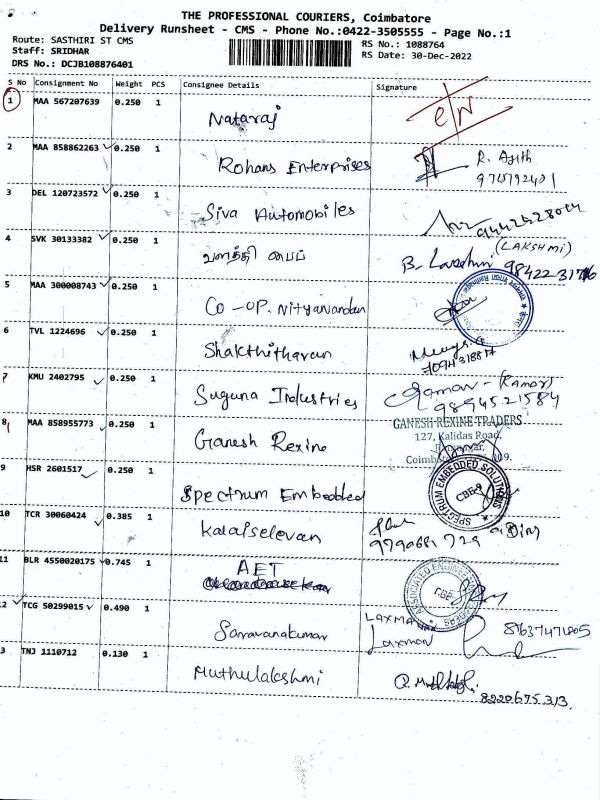 THE PROFESSIONAL COURIERS, Coimbatore
Delivery Runsheet - CMS - Phone No.:0422-3505555 - Page No.:1
Route: SASTHIRI ST CMS
Staff: SRIDHAR
DRS No.: DCJB108876401
RS No.: 1088764
RS Date: 30-Dec-2022
S No Consignment No Weight PCS Consignee Details Signature
1 MAA 567207639 0.250 1 Nataraj
2 MAA 858862263 0.250 1 Rohans Enterprises R. Ajith
3 DEL 120723572 0.250 1 Siva Automobiles
4 SVK 30133382 0.250 1 (LAKSHMI)
5 MAA 300008743 0.250 1 CO-OP. Nityanandan
6 TVL 1224696 0.250 1 Shakthitharan
7 KMU 2402795 0.250 1 Suguna Industries Raman - (Raman)
9894521584
8 MAA 858955773 0.250 1 Ganesh Rexine
GANESH REXINE TRADERS
127, Kalidas Road,
9 HSR 2601517 0.250 1 Spectrum Embedded
SPECTRUM EMBEDDED SOLUTIONS
CBE-9
10 TCR 30060424 0.385 1 Kalaiselevan
11 BLR 4550020175 0.745 1 AET
ASSOCIATED
2 TCG 50299015 0.490 1 Saravanakumar
Laxman
3 TNJ 1110712 0.130 1 Muthulakshmi
8220675313